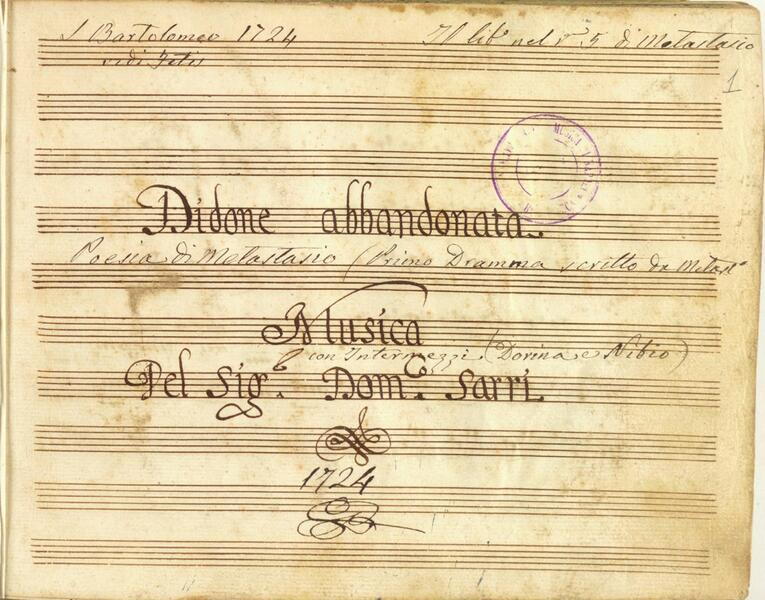 S Bartolomeo 1724
Il lib.o nel v.e 5 di Metastasio
vedi Fetis
1
Didone abbandonata.
Poesia di Metastasio (Primo Dramma scritto da Metast.o
Musica
con Intermezzi (Dorina e Nibio)
Del Sig.e Dom.co Sarri
1724